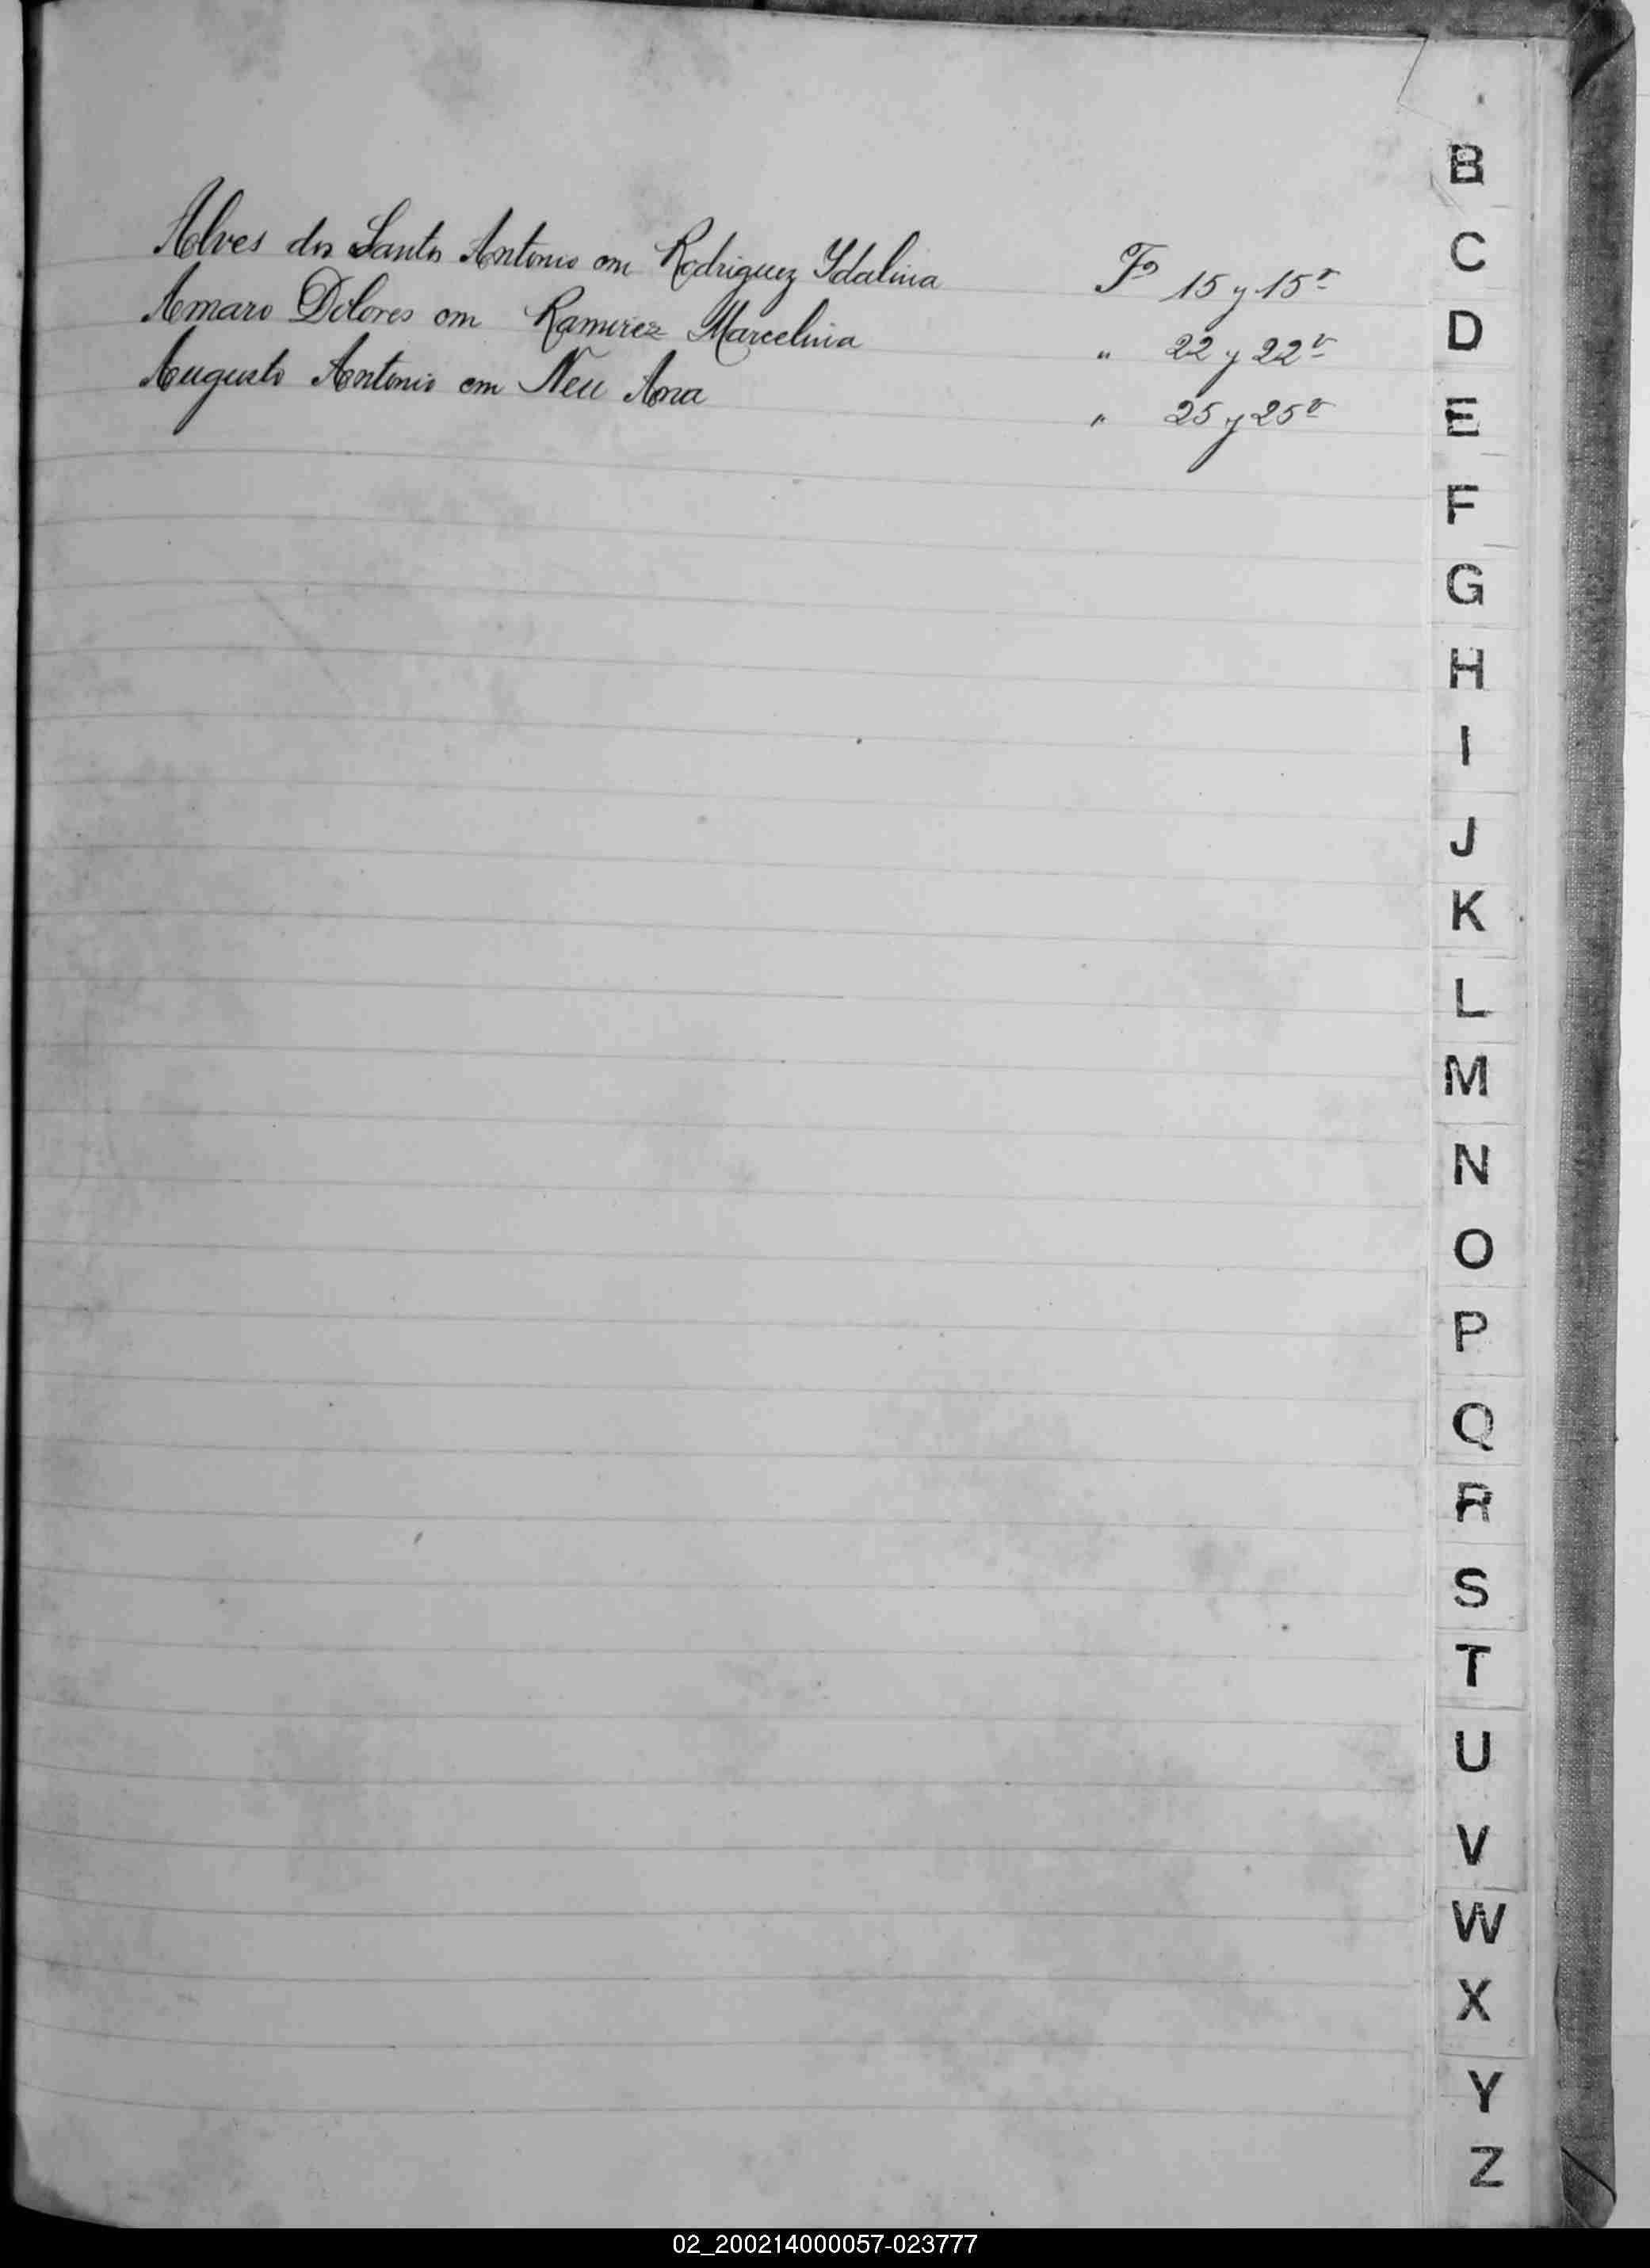 B
Alves dos Santos Antonio con Rodriguez Ydalina Fº 15 y 15v
C
Amaro Dolores con Ramirez Marcelina " 22 y 22v
D
Augusto Antonio con Neu Ana " 25 y 25v
E
F
G
H
I
J
K
L
M
N
O
P
Q
R
S
T
U
V
W
X
Y
Z
02_200214000057-023777